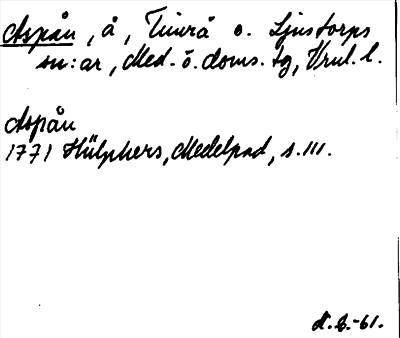 Aspån, å, Timrå o. Ljustorps
sn:ar, Med. ö. doms. tg, Vnl. l.
Aspån
1771 Hülphers, Medelpad, s. 111.
-61.